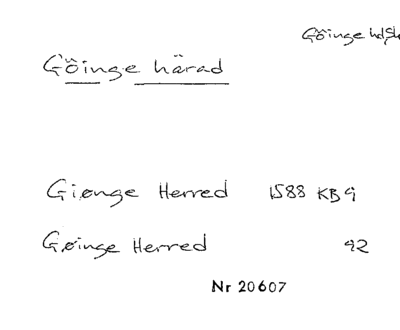 Göinge hdsk
Göinge härad
Giønge Herred 1588 KB 9
Gøinge Herred 92
Nr 20607